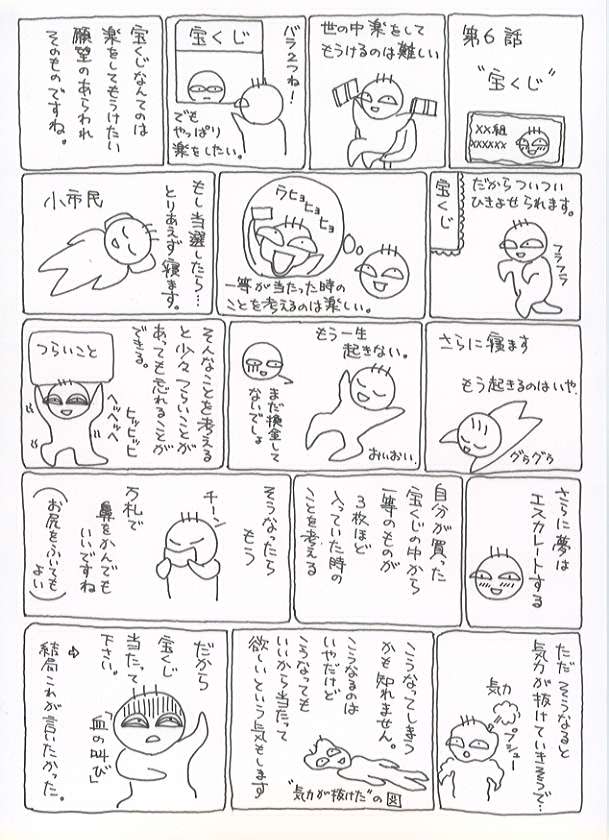 第6話
"宝くじ"
XX組
XXXXXX
世の中楽をして
もうけるのは難しい
バラ2つね!
宝くじ
でも
やっぱり
楽をしたい。
宝くじなんてのは
楽をしてもうけたい
願望のあらわれ
そのものですね。
だからついつい
ひきよせられます。
宝くじ
フラフラ
ウヒョ
ヒョ
ヒョ
ヒョ
一等が当たった時の
ことを考えるのは楽しい。
もし当選したら…
とりあえず寝ます。
小市民
さらに寝ます
もう起きるのはいや。
グゥグゥ
もう一生
起きない。
まだ換金して
ないでしょ
おいおい。
そんなことを考える
と少々つらいことが
あっても忘れることが
できる。
つらいこと
ヒッヒッヒ
ヘッヘッヘ
さらに夢は
エスカレートする
自分が買った
宝くじの中から
一等のものが
3枚ほど
入っていた時の
ことを考える
そうなったら
もう
チーン
万札で
鼻をかんでも
いいですね
(お尻をふいても
よい)
ただそうなると
気力が抜けていきそうで…
気力
プシュー
こうなってしまう
かも知れません。
こうなるのは
いやだけど
こうなっても
いいから当たって
欲しいという気もします
"気力が抜けた"の図
だから
宝くじ
当たって
下さい。
「血の叫び」
⇨
結局これが言いたかった。